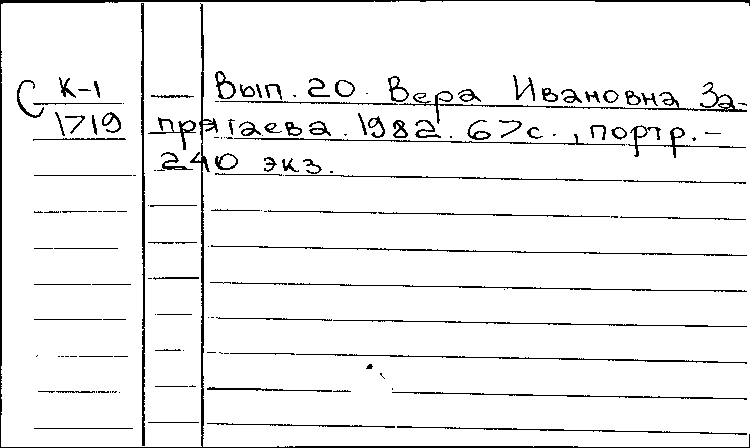 С К-1
1719
Вып. 20. Вера Ивановна За-
прягаева. 1982. 67с., портр.-
240 экз.